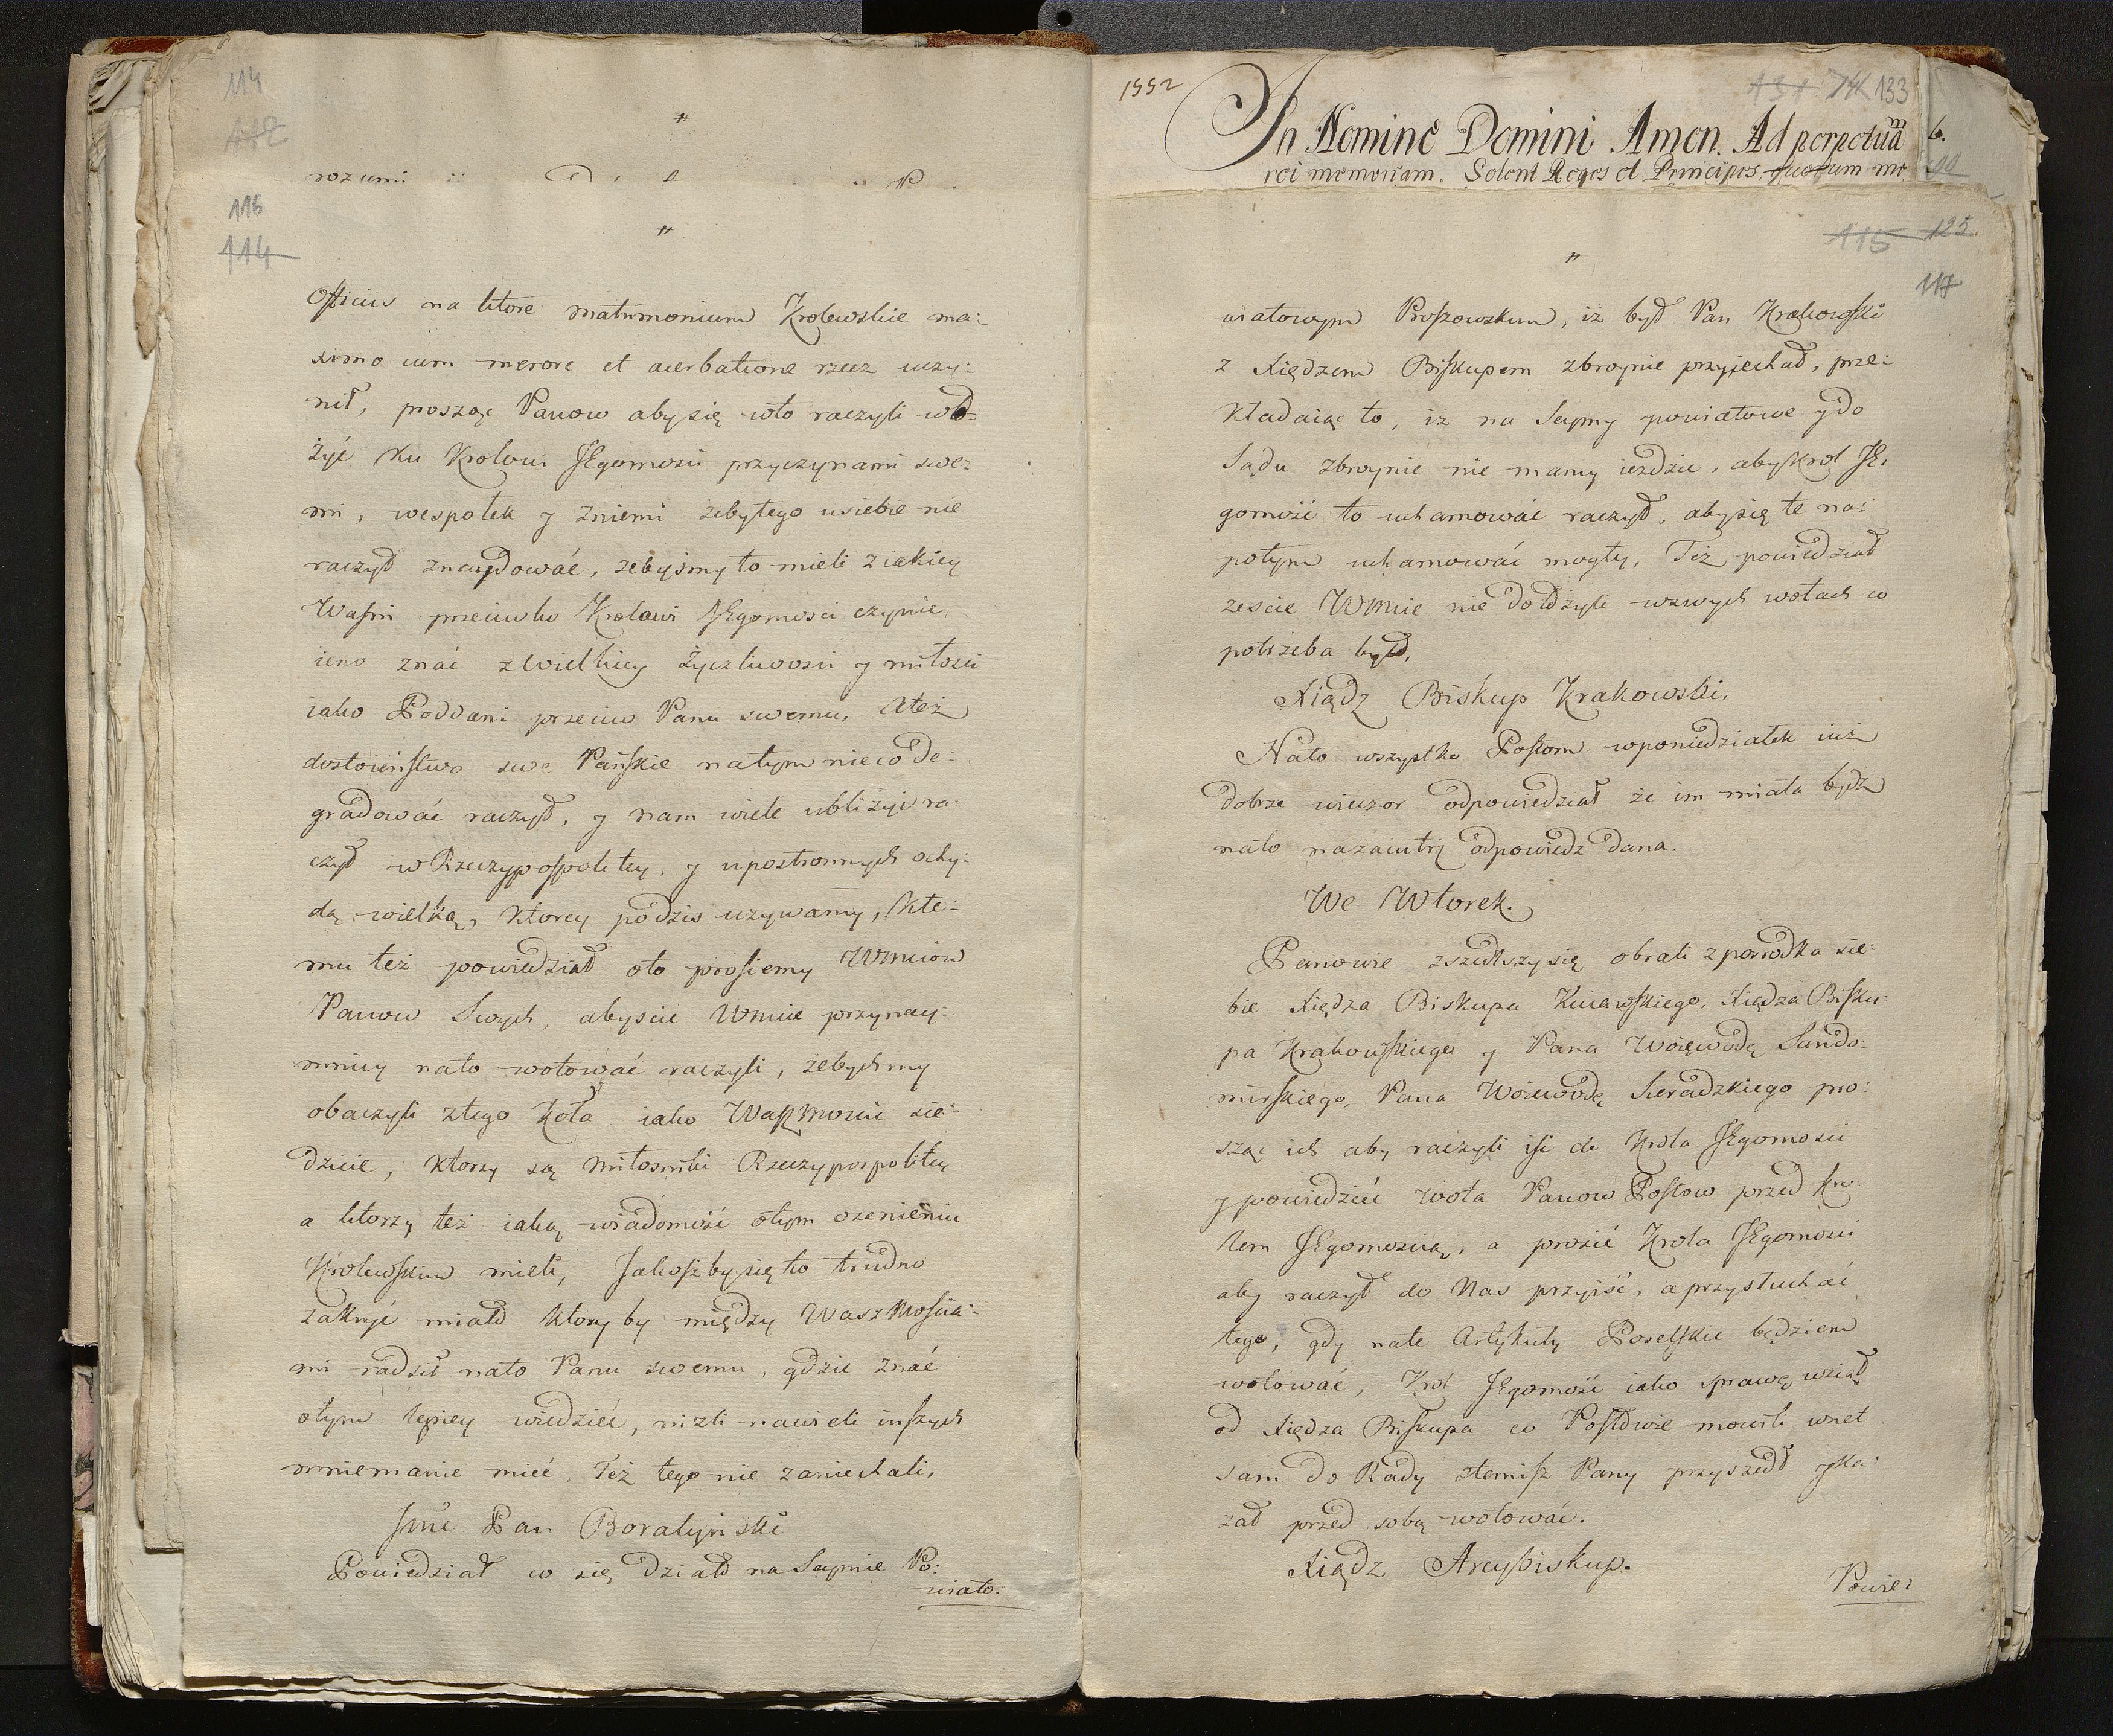 114
112
"
rozumi
116
114
"
Officiis na ktore matrimonium Krolewskie ma:
ximo cum merore et acerbatione rzecz uczy:
nił, prosząc Panow aby się wto raczyli wło=
żyć ku Krolowi JEgomosci przyczynami swe:
mi, wespołek y zniemi żebytego usiebie nie
raczył znaydować, żebyśmy to mieli z iakiey
Waśni przeciwko Krolowi JEgomosci czynić,
ieno znać zwielkiey życzliwosci y miłosci
iako Poddani przeciw Panu swemu, Ateż
dostoieństwo swe Pańskie natym nieco de:
gradować raczył, y nam wiele ubliżyć ra:
czył w Rzeczypospolitey, y upostronnych ochy:
dą wielką, ktorey podzis uzywamy, Kte:
mu też powiedział oto prosiemy WMciow
Panow Swych, abyscie WMcie przynay:
mniey nato wotować raczyli, żebychmy
obaczyli ztego Koła iako WaszMoscie sie:
dzicie, ktorzy są miłosniki Rzeczypospolitey
a ktorzy też iaką wiadomość otym ozenieniu
Krolewskim mieli, Jakoszby się to trudno
zakryć miało ktory by między WaszMościa:
mi radził nato Panu swemu, gdzie znać
otym lepiey wiedzieć, nizli nawieli inszych
mniemanie mieć, Też tego nie zaniechali,
Jmć Pan Boratyński
Powiedział co się działo na Seymie Po:
wiato:
1552
131 74 133
In Nomine Domini Amen. Ad perpetuā
rei memoriam. Solent Reges et Principes quorum me
6.
90
115 125
117
"
wiatowym Proszowskim, iż był Pan Krakowski
z Xiędzem Biskupem zbroynie przyjechał, prze:
kładaiąc to, iż na Seymy powiatowe y do
Sądu zbroynie nie mamy iezdzić, aby Krol JE:
gomość to uchamować raczył, aby się te na:
potym uchamować mogły, Też powiedział
zescie WMcie nie dołożyli wswych wotach co
potrzeba było,
Xiądz Biskup Krakowski,
Nato wszystko Posłom wponiedziałek iuż
dobrze wieczor odpowiedział że im miała bydź
nato nazaiutrz odpowiedz dana.
We Wtorek.
Panowie zszedszy się obrali zposrodka sie:
bie Xiędza Biskupa Kuiawskiego, Xiędza Bisku:
pa Krakowskiego y Pana Woiewodę Sando:
mirskiego, Pana Woiewodę Sieradzkiego pro:
sząc ich aby raczyli iść do Krola JEgomosci
y powiedzieć wota Panow Posłow przed Kro
lem JEgomoscią, a prosić Krola JEgomosci
aby raczył do Nas przyiść, a przysłuchać
tego, gdy nate Artykuły Poselskie będziem
wotować, Krol JEgomość iako sprawę wziął
od Xiędza Biskupa co Posłowie mowili wnet
sam do Rady ztemisz Pany przyszedł y ka:
zał przed sobą wotować.
Xiądz Arcybiskup.
Powie: